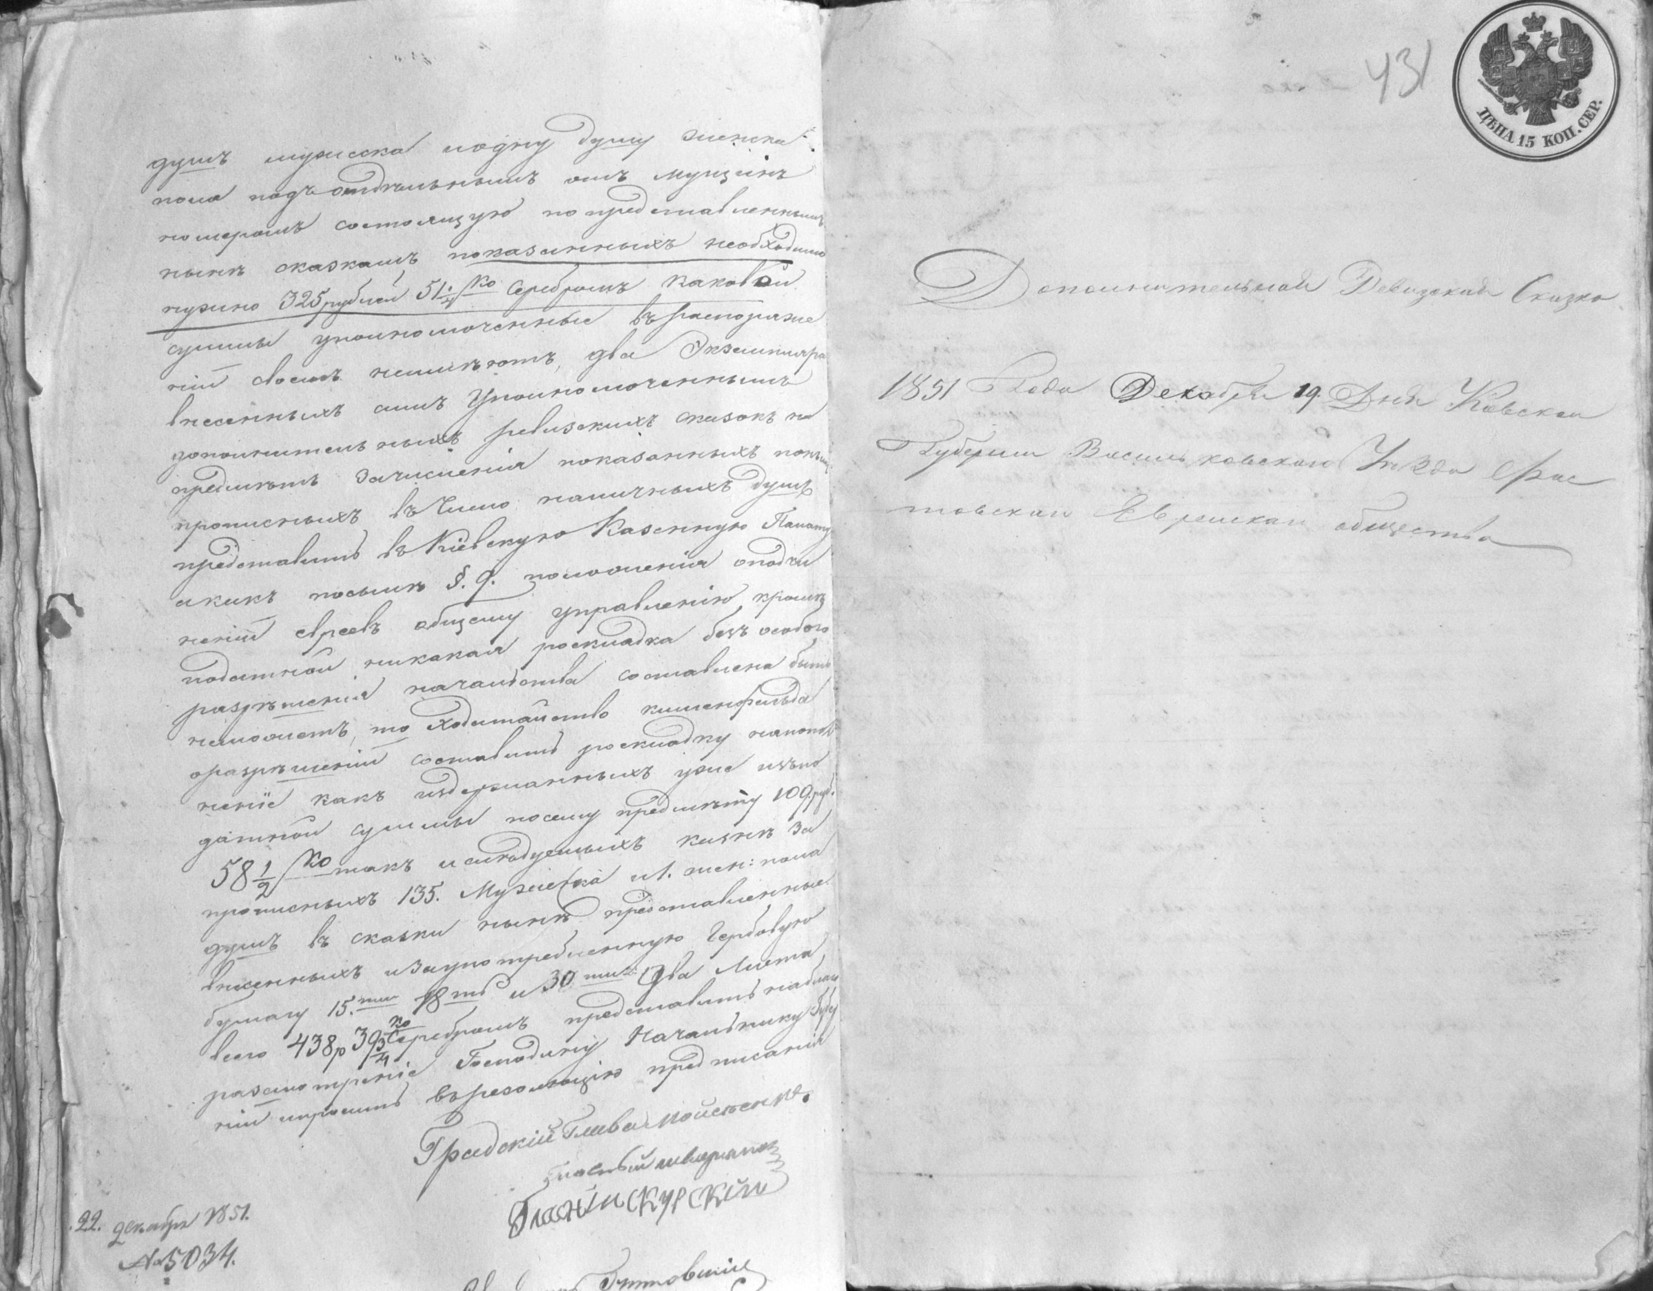 душъ мужеска и одну душу женска
пола подъ отдѣльнымъ отъ мущинъ
номеромъ состоящую по представленнымъ
нынѣ сказкамъ показанныхъ необходимо
нужно 325 рублей 51 1/4 ко серебромъ каковой
суммы уполномоченные въ распоряже
ніи своемъ неимѣютъ, два Экземпляра
внесенныхъ симъ Уполномоченнымъ
дополнительныхъ ревизскихъ сказокъ на
предметъ зачисленія показанныхъ
прописныхъ въ число наличныхъ душъ
представить въ Кіевскую Казенную Палату
а какъ посилѣ §. 9. положенія о подчи
неніи евреевъ общему управленію, кромѣ
податной никакая роскладка безъ особого
разрѣшенія начальства составлена быть
неможетъ, то ходатайство
о разрѣшеніи составить роскладку на попол
неніе какъ издержанныхъ уже изъ по
датной суммы посему предмѣту 109 руб.
58 1/2 ко такъ и слѣдуемыхъ казнѣ за
прописныхъ 135. Мужеска и 1. жен: пола
душъ въ сказки нынѣ представленные
внесенныхъ и за употребленную Гербовую
бумагу 15. 18 и 30 два Листа
всего 438 р 39 3/4 ко Серебромъ представить на благо
разсмотреніе Господину Начальнику Губер
ніи и просить въ резолюцію предписанія
Градскій Глава
Гласный
Гласный Скурскій
22. декабря 1851.
№ 5034.
431
ЦѢНА 15 КОП. СЕР.
Дополнительная Ревизская Сказка
1851 Года Декабря 19 Дня Кіевской
Губерніи Васильковскаго Уѣзда Фас
товскаго Еврейскаго общества